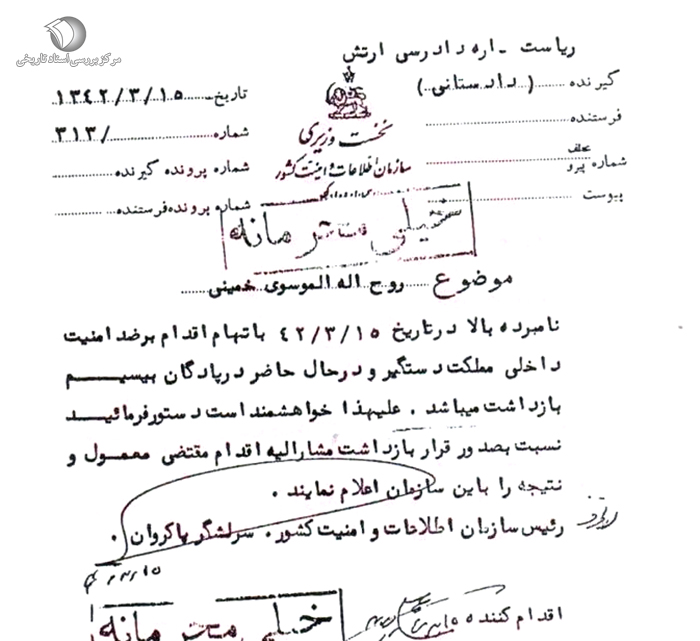 مرکز بررسی اسناد تاریخی
ریاست اداره دادرسی ارتش
گیرنده (دادستانی)
فرستنده
شماره پیرو
پیوست
نخست وزیری
سازمان اطلاعات و امنیت کشور
تاریخ ۱۳۴۲/۳/۱۵
شماره ۳۱۳/
شماره پرونده گیرنده
شماره پرونده فرستنده
خیلی محرمانه
موضوع روح اله الموسوی خمینی
نامبرده بالا درتاریخ ۴۲/۳/۱۵ باتهام اقدام برضد امنیت
داخلی مملکت دستگیر و درحال حاضر درپادگان بیسیم
بازداشت میباشد . علیهذا خواهشمند است دستورفرمائید
نسبت بصدور قرار بازداشت مشارالیه اقدام مقتضی معمول و
نتیجه را باین سازمان اعلام نمایند .
رئیس سازمان اطلاعات و امنیت کشور . سرلشگر پاکروان .
اقدام کننده
خیلی محرمانه